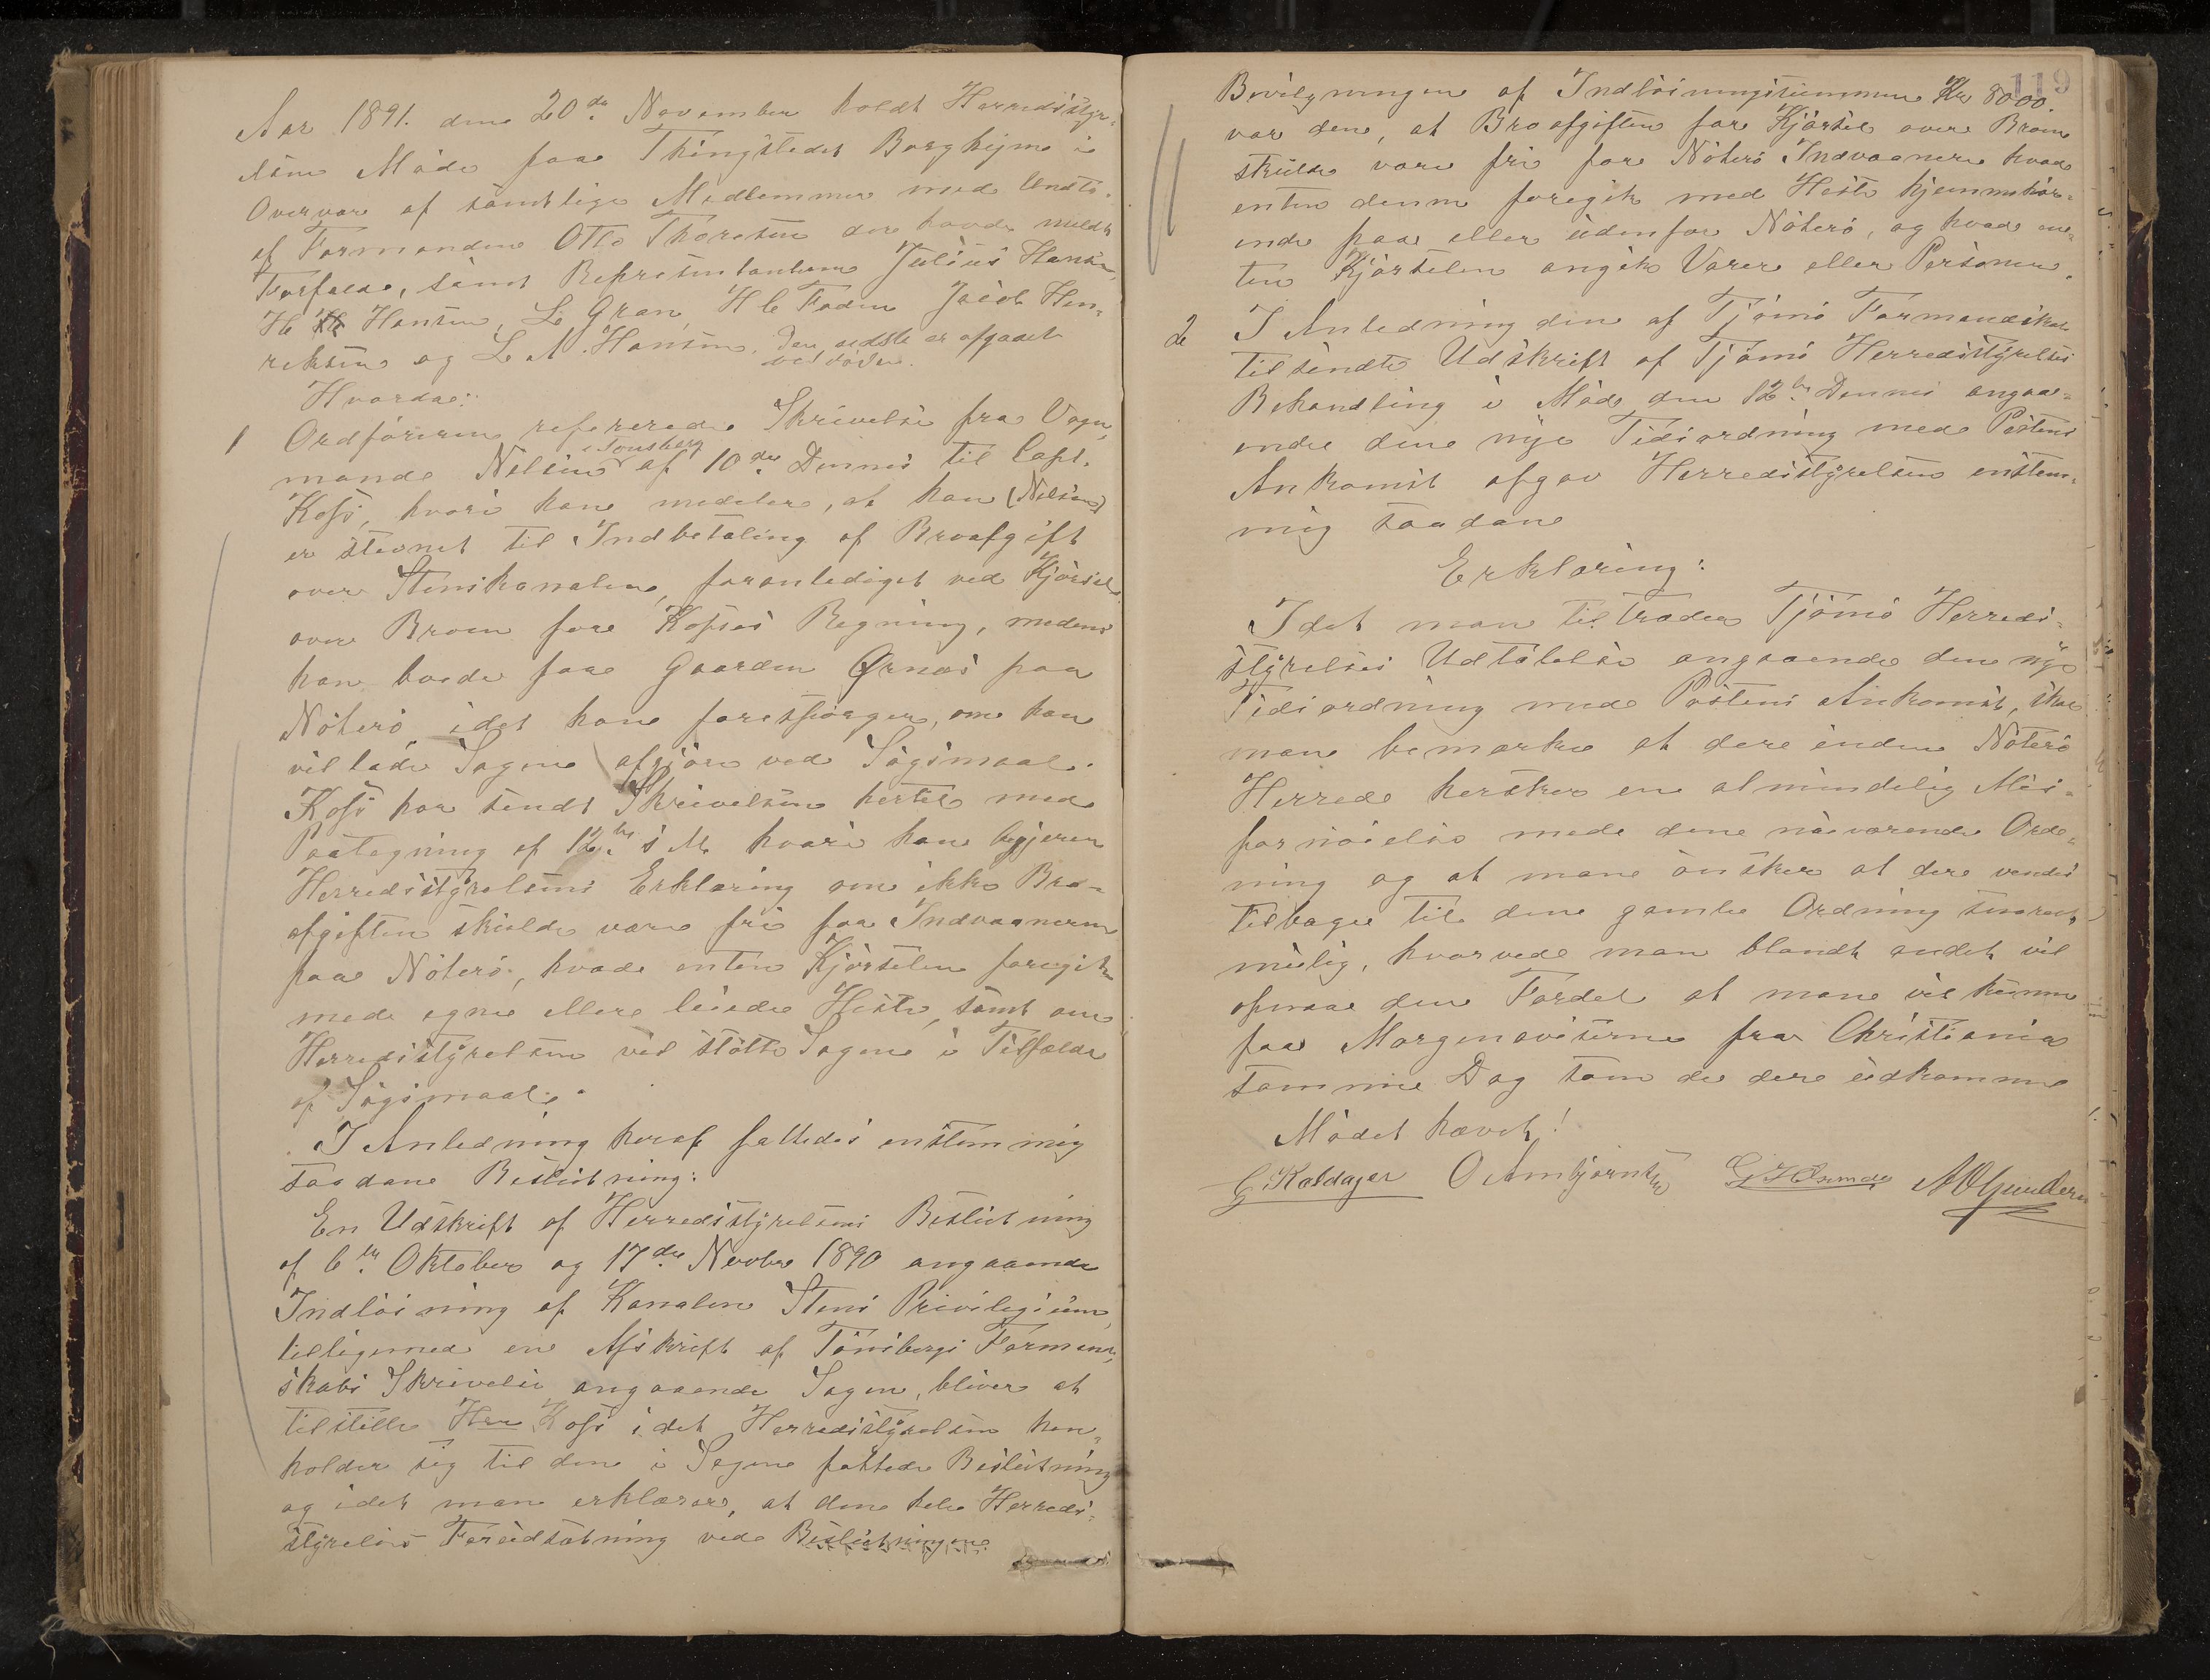 Aar 1891. den 20de November holdt Herredsstyr-
elsen Møde paa Thingstedet Borgheim i
Overvær af samtlige Medlemmer med Undt.
af Formanden Otto Thoresen der havde meldt
Forfald, samt Repræsentanterne Julius Hansen,
H Hansen, L. Gran, H C Foden Jacob Hen-
riksen og L. M. Hansen. Den sidste er afgaaet
ved Døden.
Hvorda:
1 Ordføreren refererede Skrivelse fra Vogn-
mand Nilsen i Tønsberg af 10de Dennes til Capt.
Kofs, hvori han meddeler, at han (Nilsen)
er stevnet til Indbetaling af Broafgift
over Stenskanalen, foranlediget ved Kjørsel
over Broen for Kofses Regning, medens
han boede paa Gaarden Ørnes paa
Nøterø, idet han forespørger, om han
vil lade Sagen afgjøre ved Søgsmaal.
Kofs har sendt Skrivelsen hertil med
Paategning af 12te s M. hvori han begjærer
Herredsstyrelsens Erklæring om ikke Bro-
afgiften skulde være fri for Indvaanerne
paa Nøterø, hvad enten Kjørselen foregik
med egne eller leiede Heste, samt om
Herredsstyrelsen vil støtte Sagen i Tilfælde
af Søgsmaal.
I Anledning heraf fattedes enstemmig
saadan Beslutning:
En Udskrift af Herredsstyrelsens Beslutning
af 6te Oktober og 17de Novbr 1890 angaaende
Indløsning af Kanalen Stens Privilegium,
tilligemed en Afskrift af Tønsbergs Forman-
skabs Skrivelse angaaende Sagen, bliver at
tilstille Herr Kofs idet Herredsstyrelsen hen-
holder sig til den i Sagen fattede Beslutning
og idet man erklærer, at den hele Herreds-
styrelses Forudsætning ved Beslutningen
119
Bevilgningen af Indløsningssummen Kr 8000.
var den, at Broafgiften for Kjørsel over Broen
skulde være fri for Nøterø Indvaanere hvad
enten denne foregik med Heste hjemmehør-
ende paa eller udenfor Nøterø, og hvad en-
ten Kjørselen angik Varer eller Personer.
2 I Anledning den af Tjømø Formandskab
tilsendte Udskrift af Tjømø Herredsstyrelses
Behandling i Møde den 12te Dennes angaa-
ende den nye Tidsordning med Postens
Ankomst afgav Herredsstyrelsen enstem-
mig saadan
Erklæring:
Idet man tiltræder Tjømø Herreds-
styrelses Udtalelse angaaende den nye
Tidsordning med Postens Ankomst, skal
man bemærke at der inden Nøterø
Herred hersker en almindelig Mis-
fornøielse med den nuværende Ord-
ning og at man ønsker at der vendes
tilbage til den gamle Ordning snarest
mulig, hvorved man blandt andet vil
opnaa den Fordel at man vil kunne
faa Morgenaviserne fra Christiania
samme Dag som de der udkomme
Mødet hævet!
G. Kaldager O Ambjørnsen